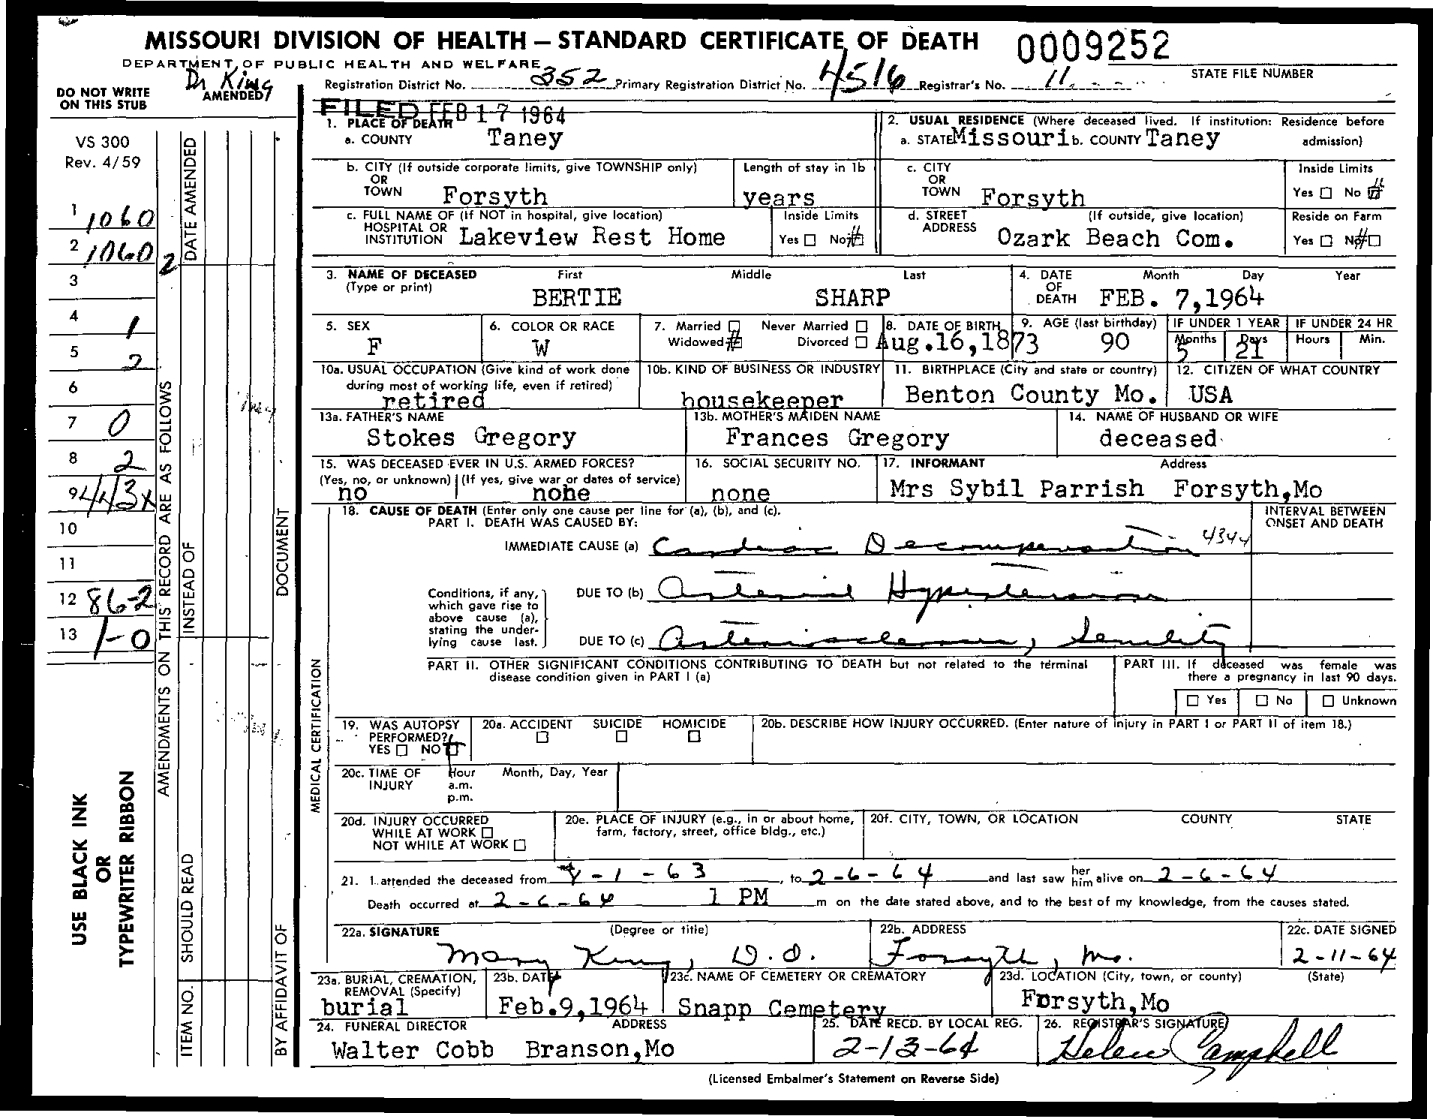 MISSOURI DIVISION OF HEALTH — STANDARD CERTIFICATE OF DEATH 0009252
DEPARTMENT OF PUBLIC HEALTH AND WELFARE
STATE FILE NUMBER
Dr King
AMENDED
Registration District No. 352 Primary Registration District No. 4516 Registrar's No. 11
DO NOT WRITE
ON THIS STUB
VS 300
Rev. 4/59
1 1060
2 1060 2
3
4 1
5 2
6
7 0
8 2
9 443X
10
11
12 86-2
13 1-0
USE BLACK INK
OR
TYPEWRITER RIBBON
AMENDMENTS ON THIS RECORD ARE AS FOLLOWS
DATE AMENDED
INSTEAD OF
SHOULD READ
ITEM NO.
DOCUMENT
BY AFFIDAVIT OF
FILED FEB 17 1964
1. PLACE OF DEATH
a. COUNTY Taney
2. USUAL RESIDENCE (Where deceased lived. If institution: Residence before
admission)
a. STATE Missouri b. COUNTY Taney
b. CITY (If outside corporate limits, give TOWNSHIP only)
OR
TOWN Forsyth
Length of stay in 1b
years
c. CITY
OR
TOWN Forsyth
Inside Limits
Yes No
c. FULL NAME OF (If NOT in hospital, give location)
HOSPITAL OR
INSTITUTION Lakeview Rest Home
Inside Limits
Yes No
d. STREET
ADDRESS
(If outside, give location)
Ozark Beach Com.
Reside on Farm
Yes No
3. NAME OF DECEASED
(Type or print)
First Middle Last
BERTIE SHARP
4. DATE
OF
DEATH
Month Day Year
FEB. 7,1964
5. SEX
F
6. COLOR OR RACE
W
7. Married Never Married
Widowed Divorced
8. DATE OF BIRTH
Aug.16,1873
9. AGE (last birthday)
90
IF UNDER 1 YEAR
Months Days
5 21
IF UNDER 24 HR
Hours Min.
10a. USUAL OCCUPATION (Give kind of work done
during most of working life, even if retired)
retired
10b. KIND OF BUSINESS OR INDUSTRY
housekeeper
11. BIRTHPLACE (City and state or country)
Benton County Mo.
12. CITIZEN OF WHAT COUNTRY
USA
13a. FATHER'S NAME
Stokes Gregory
13b. MOTHER'S MAIDEN NAME
Frances Gregory
14. NAME OF HUSBAND OR WIFE
deceased
15. WAS DECEASED EVER IN U.S. ARMED FORCES?
(Yes, no, or unknown) (If yes, give war or dates of service)
no none
16. SOCIAL SECURITY NO.
none
17. INFORMANT Address
Mrs Sybil Parrish Forsyth,Mo
MEDICAL CERTIFICATION
18. CAUSE OF DEATH (Enter only one cause per line for (a), (b), and (c).
PART I. DEATH WAS CAUSED BY:
INTERVAL BETWEEN
ONSET AND DEATH
IMMEDIATE CAUSE (a) Cardiac Decompensation 4344
Conditions, if any,
which gave rise to
above cause (a),
stating the under-
lying cause last.
DUE TO (b) Arterial Hypertension
DUE TO (c) Arteriosclerosis, Senility
PART II. OTHER SIGNIFICANT CONDITIONS CONTRIBUTING TO DEATH but not related to the terminal
disease condition given in PART I (a)
PART III. If deceased was female was
there a pregnancy in last 90 days.
Yes No Unknown
19. WAS AUTOPSY
PERFORMED?
YES NO
20a. ACCIDENT SUICIDE HOMICIDE
20b. DESCRIBE HOW INJURY OCCURRED. (Enter nature of injury in PART I or PART II of item 18.)
20c. TIME OF
INJURY
Hour Month, Day, Year
a.m.
p.m.
20d. INJURY OCCURRED
WHILE AT WORK
NOT WHILE AT WORK
20e. PLACE OF INJURY (e.g., in or about home,
farm, factory, street, office bldg., etc.)
20f. CITY, TOWN, OR LOCATION COUNTY STATE
21. I attended the deceased from -1-63, to 2-6-64 and last saw her him alive on 2-6-64
Death occurred at 2-6-64 1 PM m on the date stated above, and to the best of my knowledge, from the causes stated.
22a. SIGNATURE (Degree or title)
Mary King, D.O.
22b. ADDRESS
Forsyth, Mo.
22c. DATE SIGNED
2-11-64
23a. BURIAL, CREMATION,
REMOVAL (Specify)
burial
23b. DATE
Feb.9,1964
23c. NAME OF CEMETERY OR CREMATORY
Snapp Cemetery
23d. LOCATION (City, town, or county) (State)
Forsyth,Mo
24. FUNERAL DIRECTOR ADDRESS
Walter Cobb Branson,Mo
25. DATE RECD. BY LOCAL REG.
2-13-64
26. REGISTRAR'S SIGNATURE
Helen Campbell
(Licensed Embalmer's Statement on Reverse Side)